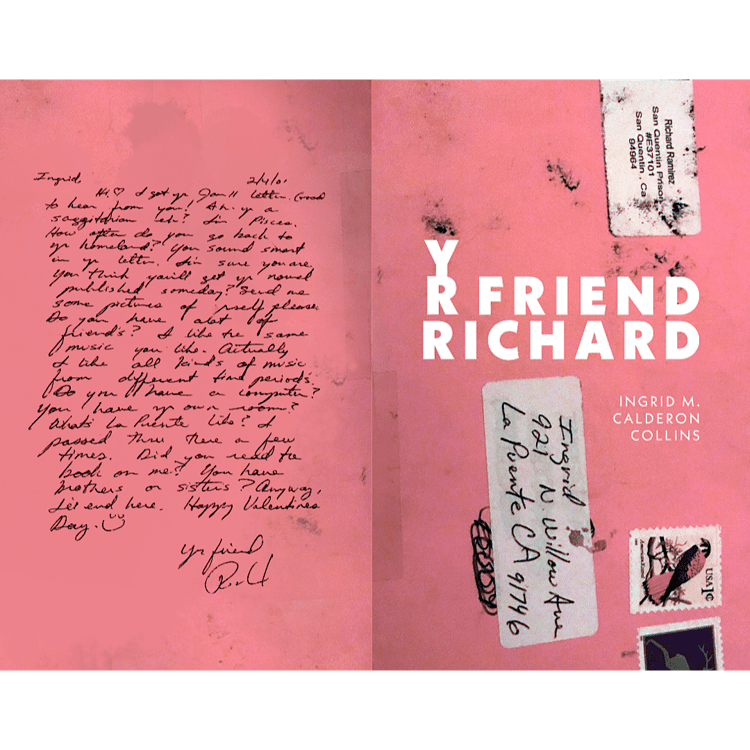 Ingrid, 2/4/01
Hi ♡ I got yr Jan 11 letter. Good
to hear from you! Ah. yr a
saggitarian eh? I'm Pisces.
How often do you go back to
yr homeland? You sound smart
in yr letter. I'm sure you are.
You think you'll get yr novel
published someday? Send me
some pictures of yrself please.
Do you have alot of
friends? I like the same
music you like. Actually
I like all kinds of music
from different time periods.
Do you have a computer?
You have yr own room?
What's La Puente like? I
passed thru there a few
times. Did you read the
book on me? You have
brothers or sisters? Anyway,
I'll end here. Happy Valentines
Day. ☺
Yr friend
Richard
Richard Ramirez
San Quentin Prison
#E37101
San Quentin, Ca
94964
Y
R FRIEND
RICHARD
INGRID M.
CALDERON
COLLINS
Ingrid
921 N. Willow Ave
La Puente CA 91746
USA 1¢